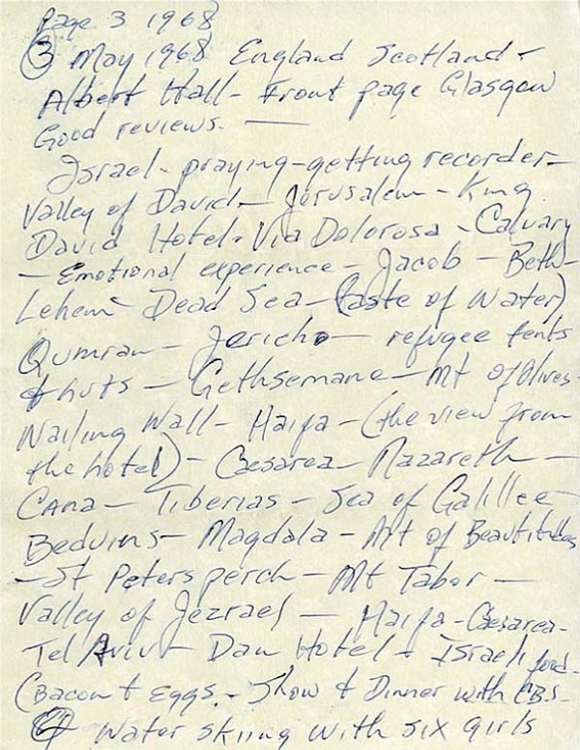 Page 3 1968
③ May 1968 England Scotland -
Albert Hall - Front page Glasgow
Good reviews. —
Israel - praying - getting recorder -
Valley of David - Jerusalem - King
David Hotel. Via Dolorosa - Calvary
- Emotional experience - Jacob - Beth-
Lehem - Dead Sea - (taste of water)
Qumran - Jericho - refugee tents
& huts - Gethsemane - Mt of Olives -
Wailing Wall - Haifa - (the view from
the hotel) - Caesarea - Nazareth -
Cana - Tiberias - Sea of Galillee -
Beduins - Magdala - Mt of Beautitudes
- St Peters perch - Mt Tabor -
Valley of Jezrael - Haifa - Caesarea -
Tel Aviv - Dan Hotel - Israeli food -
(Bacon & Eggs - Show & Dinner with CBS -
④ Water skiing with six girls